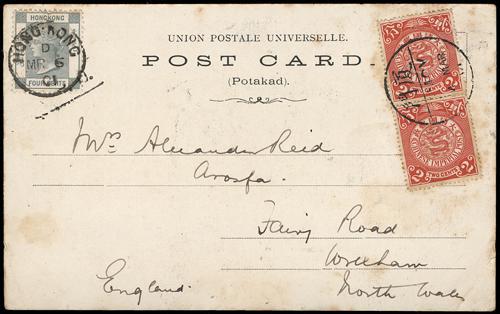 HONGKONG
FOUR CENTS
HONG-KONG
D
MR 6
01
UNION POSTALE UNIVERSELLE.
POST CARD.
(Potakad)
CHINESE IMPERIAL POST
2 TWO CENTS 2
Mrs Alexander Reid
Arosfa.
Fairy Road
Wrexham
North Wales
England.